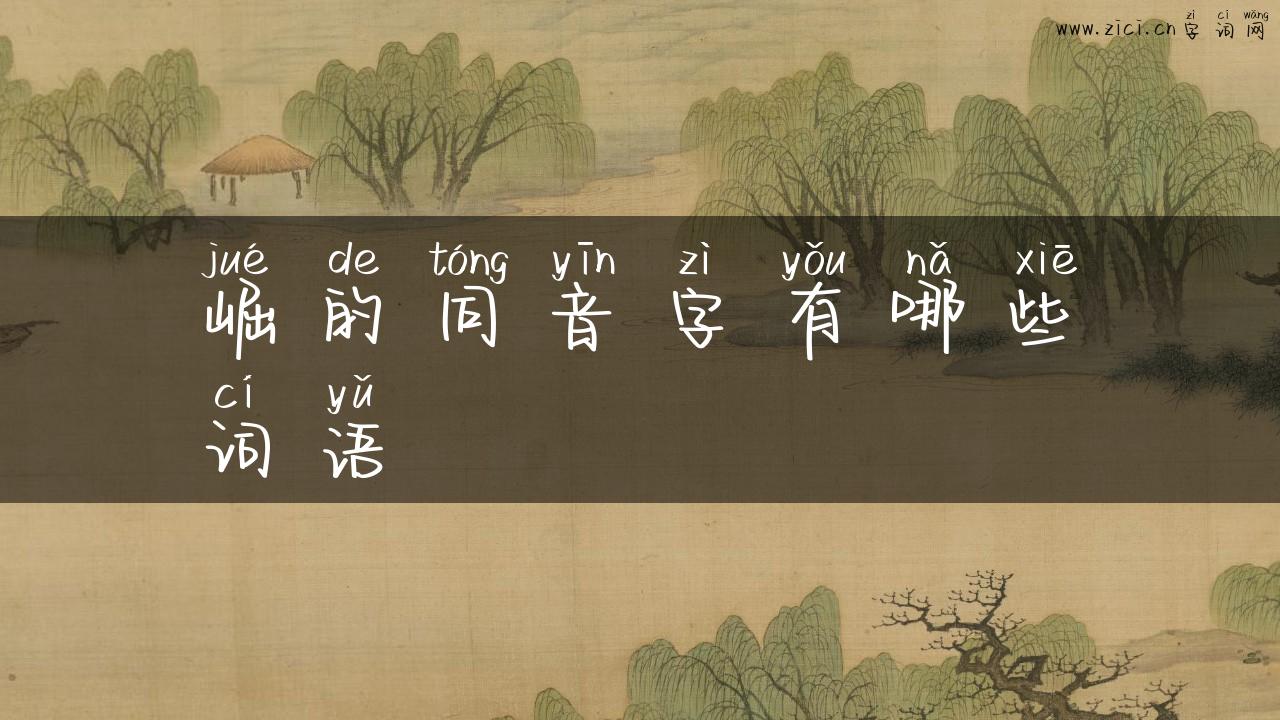 zì cí wǎng
www.zici.cn 字词网
jué de tóng yīn zì yǒu nǎ xiē
崛的同音字有哪些
cí yǔ
词语